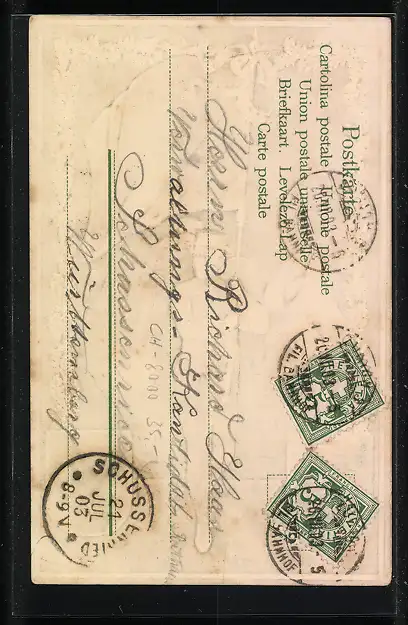 Postkarte
Cartolina postale Unione postale
Union postale universelle
Briefkaart. Levelező-Lap
Carte postale
Herrn Richard Haas
Verwaltungs-Kandidat
Schussenried
Württemberg
CH-8000 35,-
SCHUSSENRIED
21
JUL
03
8-9V